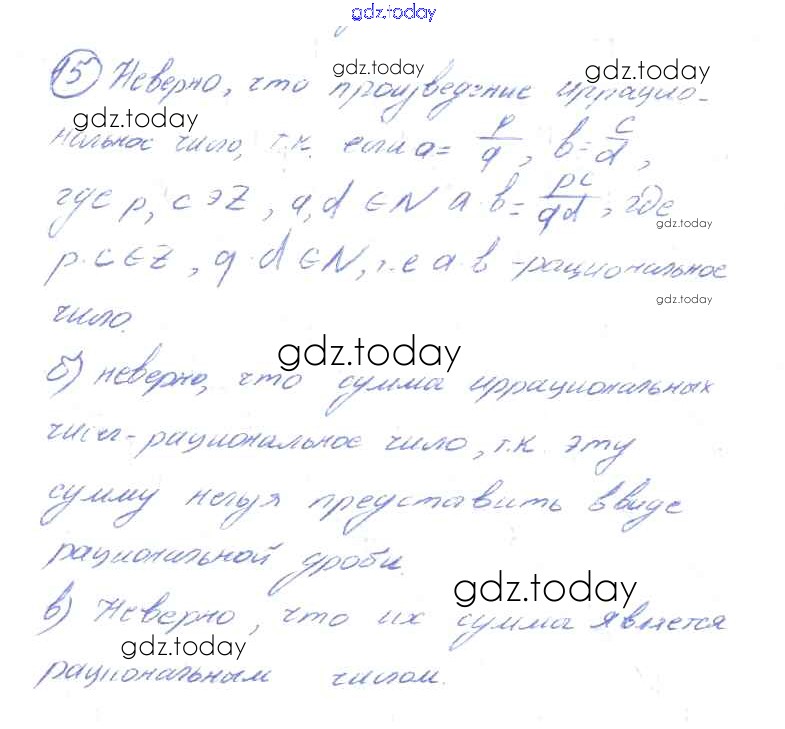 gdz.today
15 Неверно, что произведение иррацио-
gdz.today gdz.today
нальное число, т.к. если a = p/q, b = c/d,
gdz.today
где p, c ∋ Z, q, d ∈ N a·b = pc/qd, где
gdz.today
p·c ∈ Z, q·d ∈ N, т.е a·b - рациональное
gdz.today
число.
gdz.today
б) неверно, что сумма иррациональных
чисел - рациональное число, т.к. эту
сумму нельзя представить в виде
рациональной дроби.
gdz.today
в) Неверно, что их сумма является
gdz.today
рациональным числом.